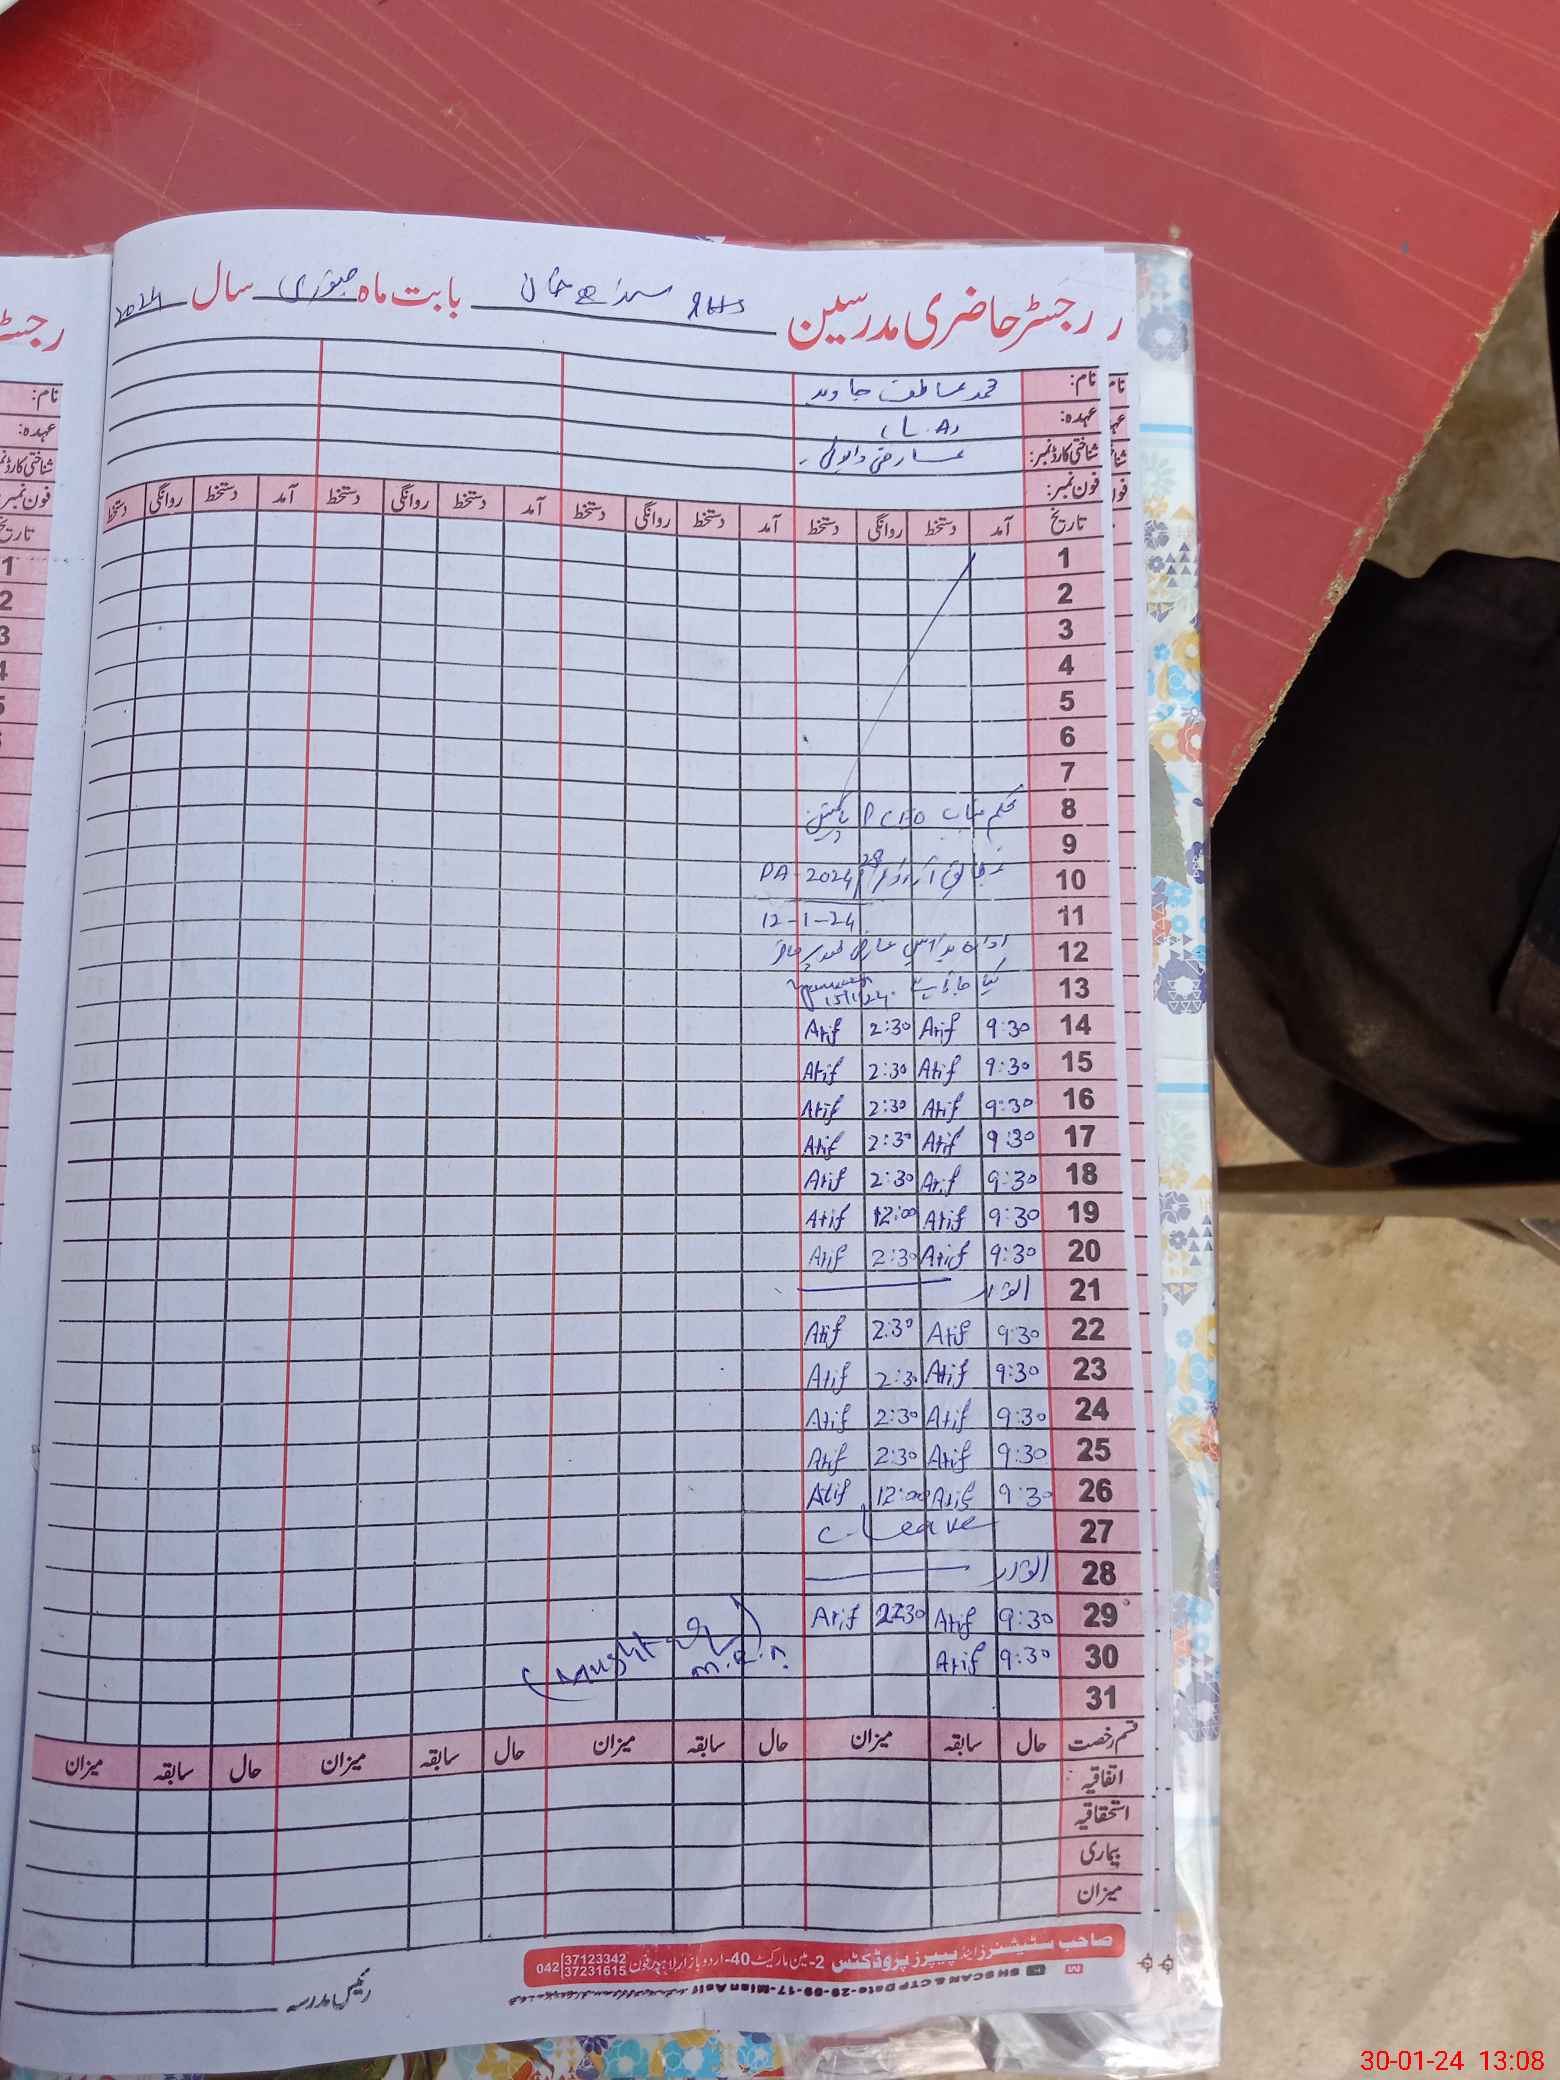 رجسٹر حاضری مدرسین GHS بابت ماہ جنوری سال 2024
نام: محمد عاطف جاوید
عہدہ: (L.A)
شناختی کارڈ نمبر: عارضی ڈیوٹی
فون نمبر:
تاریخ آمد دستخط روانگی دستخط آمد دستخط روانگی دستخط آمد دستخط روانگی دستخط آمد دستخط روانگی دستخط
1
2
3
4
5
6
7
8 بحکم جناب
9
10 28 /2024 - DA
11 12-1-24
12 ادارہ ہذا میں عارضی طور پر حاضر
13 کیا جاتا ہے 15/1/24
14 9:30 Atif 2:30 Atif
15 9:30 Atif 2:30 Atif
16 9:30 Atif 2:30 Atif
17 9:30 Atif 2:30 Atif
18 9:30 Atif 2:30 Atif
19 9:30 Atif 12:00 Atif
20 9:30 Atif 2:30 Atif
21 اتوار
22 9:30 Atif 2:30 Atif
23 9:30 Atif 2:30 Atif
24 9:30 Atif 2:30 Atif
25 9:30 Atif 2:30 Atif
26 9:30 Atif 12:00 Atif
27 C-Leave
28 اتوار
29 9:30 Atif 2:30 Atif
30 9:30 Atif
31
قسم رخصت حال سابقہ میزان حال سابقہ میزان حال سابقہ میزان حال سابقہ میزان
اتفاقیہ
استحقاقیہ
بیماری
میزان
صاحب سٹیشنرز اینڈ پیپرز پروڈکٹس 2-مین مارکیٹ 40-اردو بازار لاہور فون 042 37123342 37231615
SH SCAN & CTP Date-29-09-17-Mian Asif
رئیس مدرسہ
رجسٹر
نام:
عہدہ:
شناختی کارڈ نمبر
فون نمبر:
تاریخ
1
2
3
4
5
30-01-24 13:08